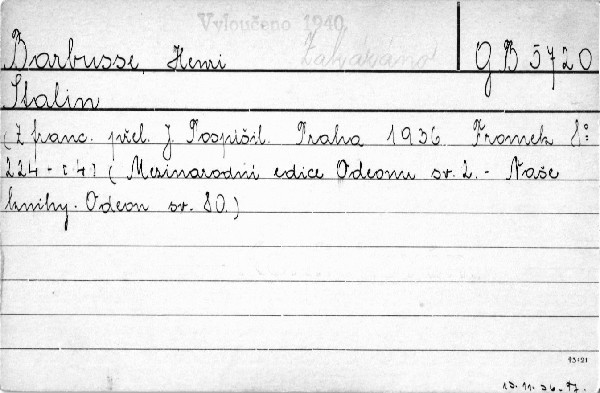 Vyloučeno 1940
Barbusse, Henri Zakázáno G B 5720
Stalin
(Z franc. přel. J. Pospíšil. Praha 1936 Fromek 8°
224 - [4] ( Mezinárodní edice Odeonu sv. 2. - Naše
knihy. Odeon sv. 80.)
13.11.36.